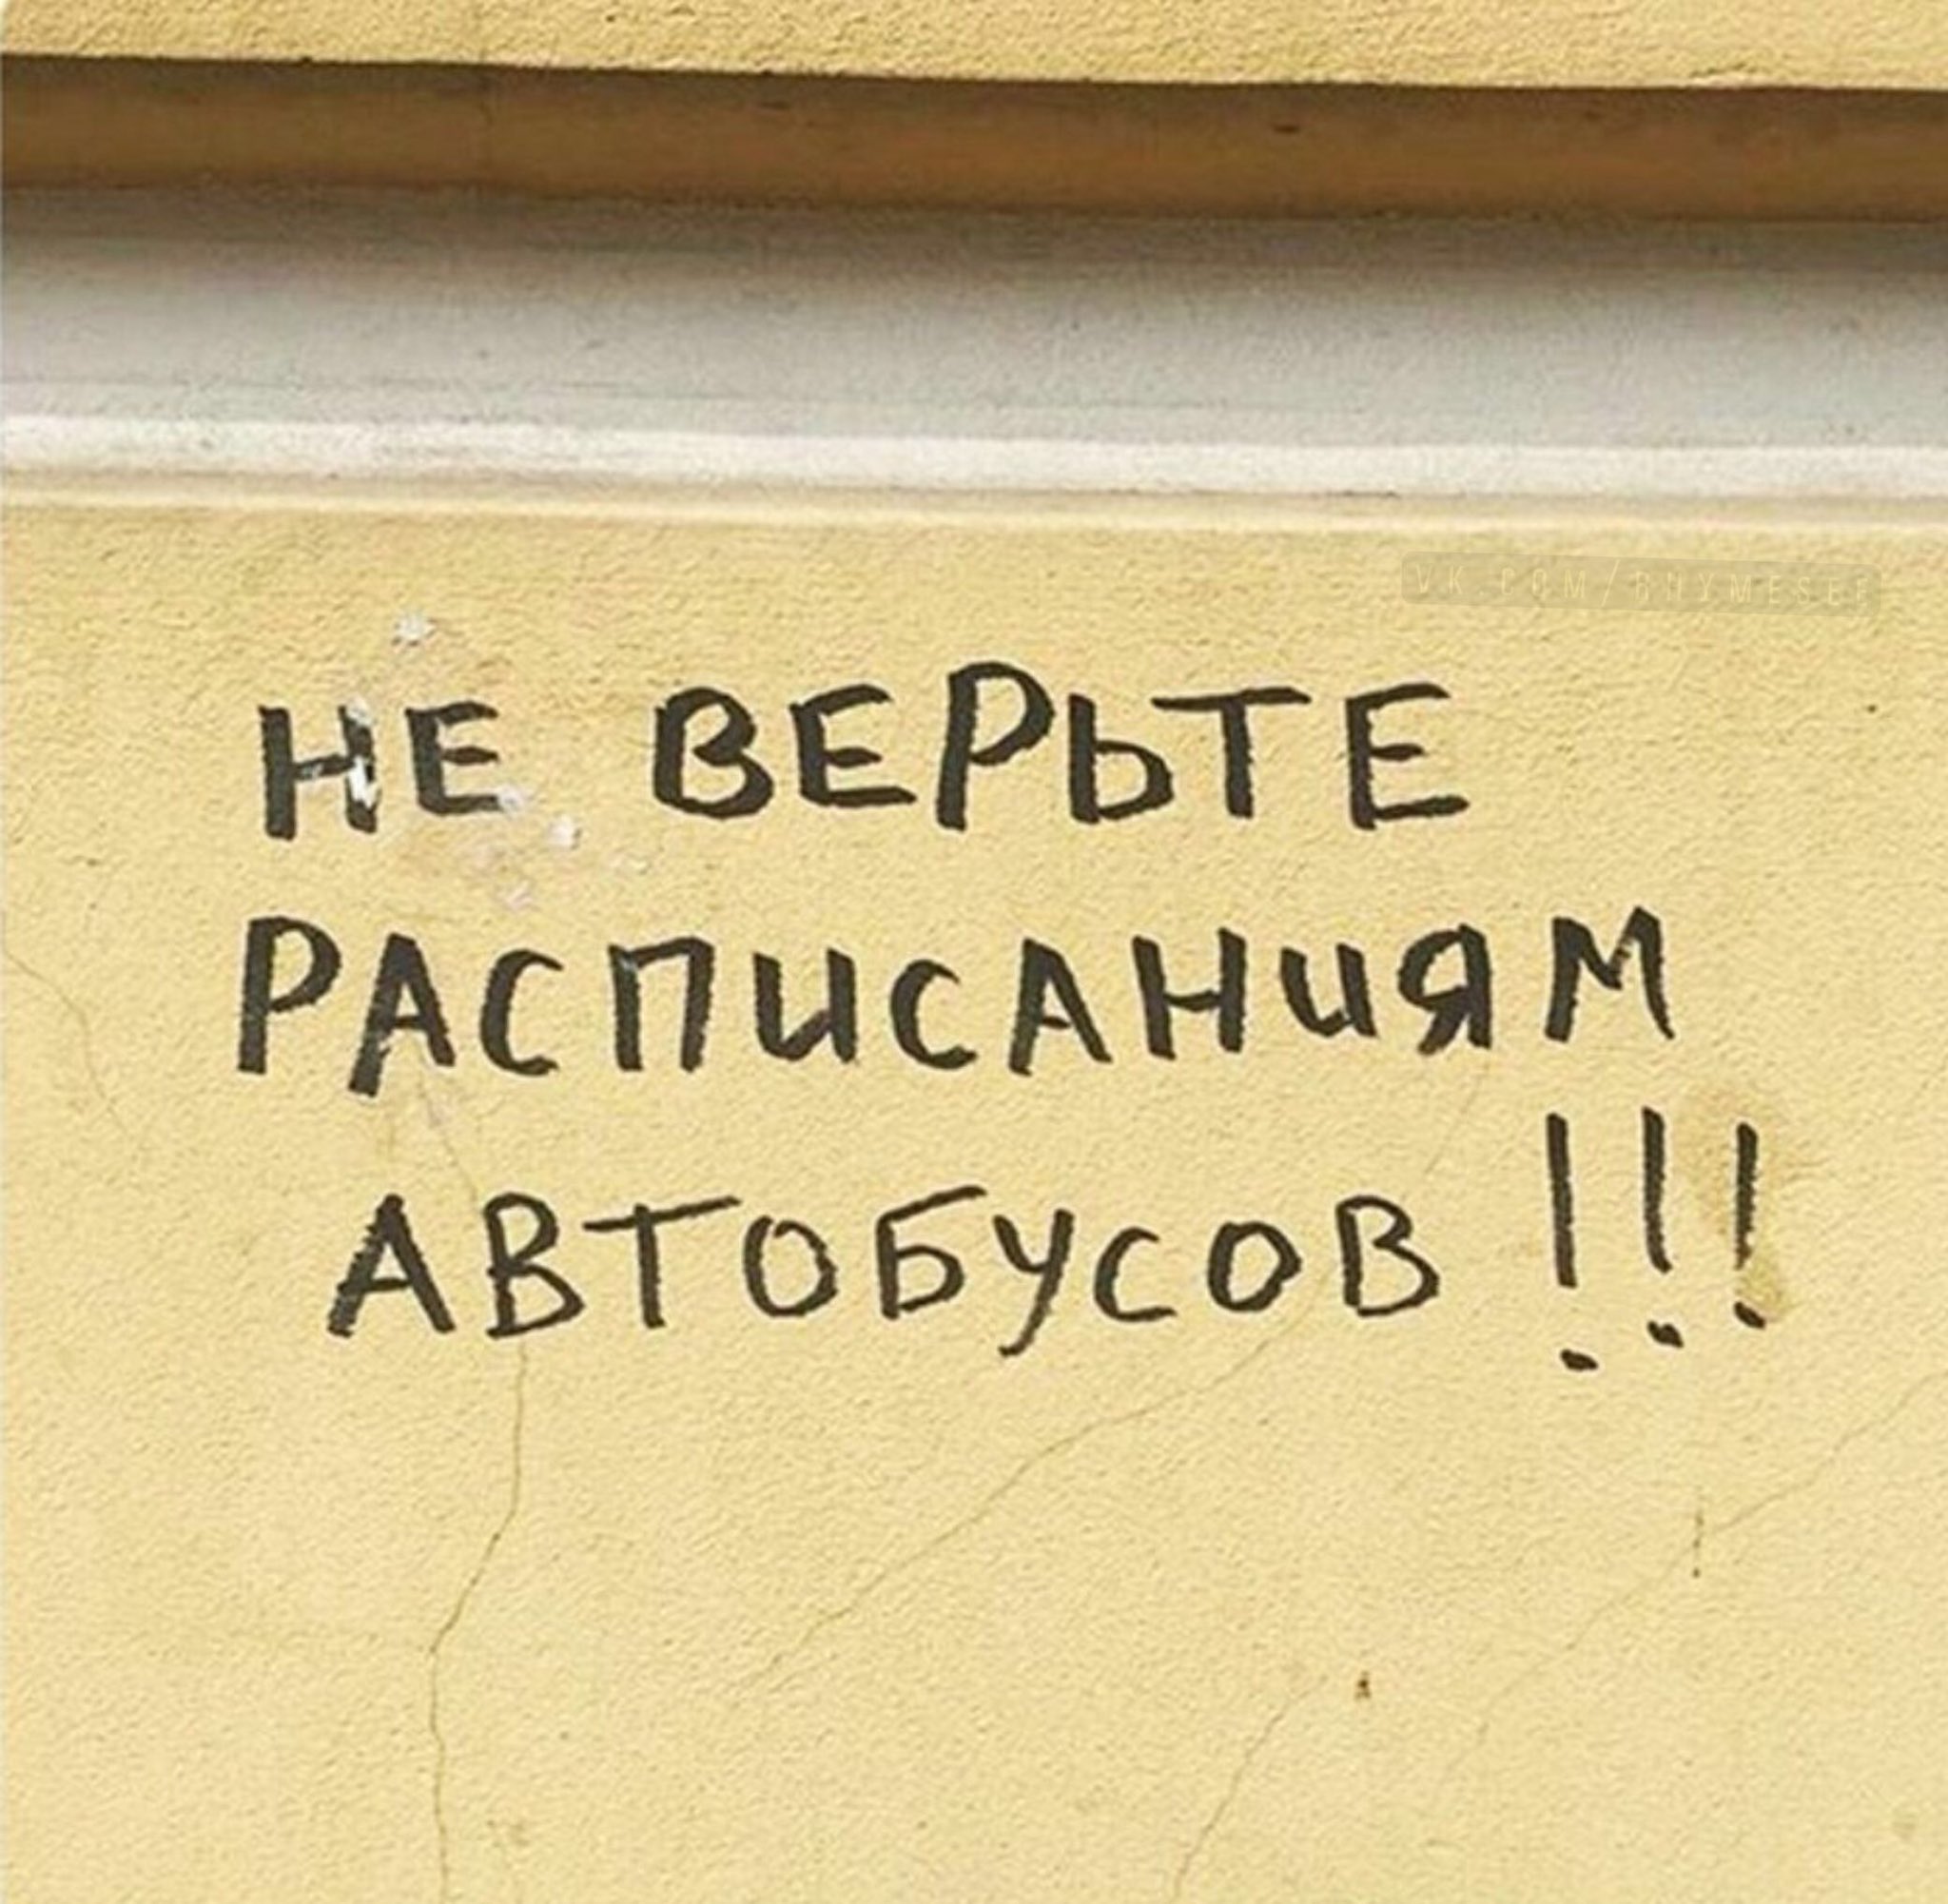 VK.COM/RHYMESEE
НЕ ВЕРЬТЕ
РАСПИСАНИЯМ
АВТОБУСОВ !!!